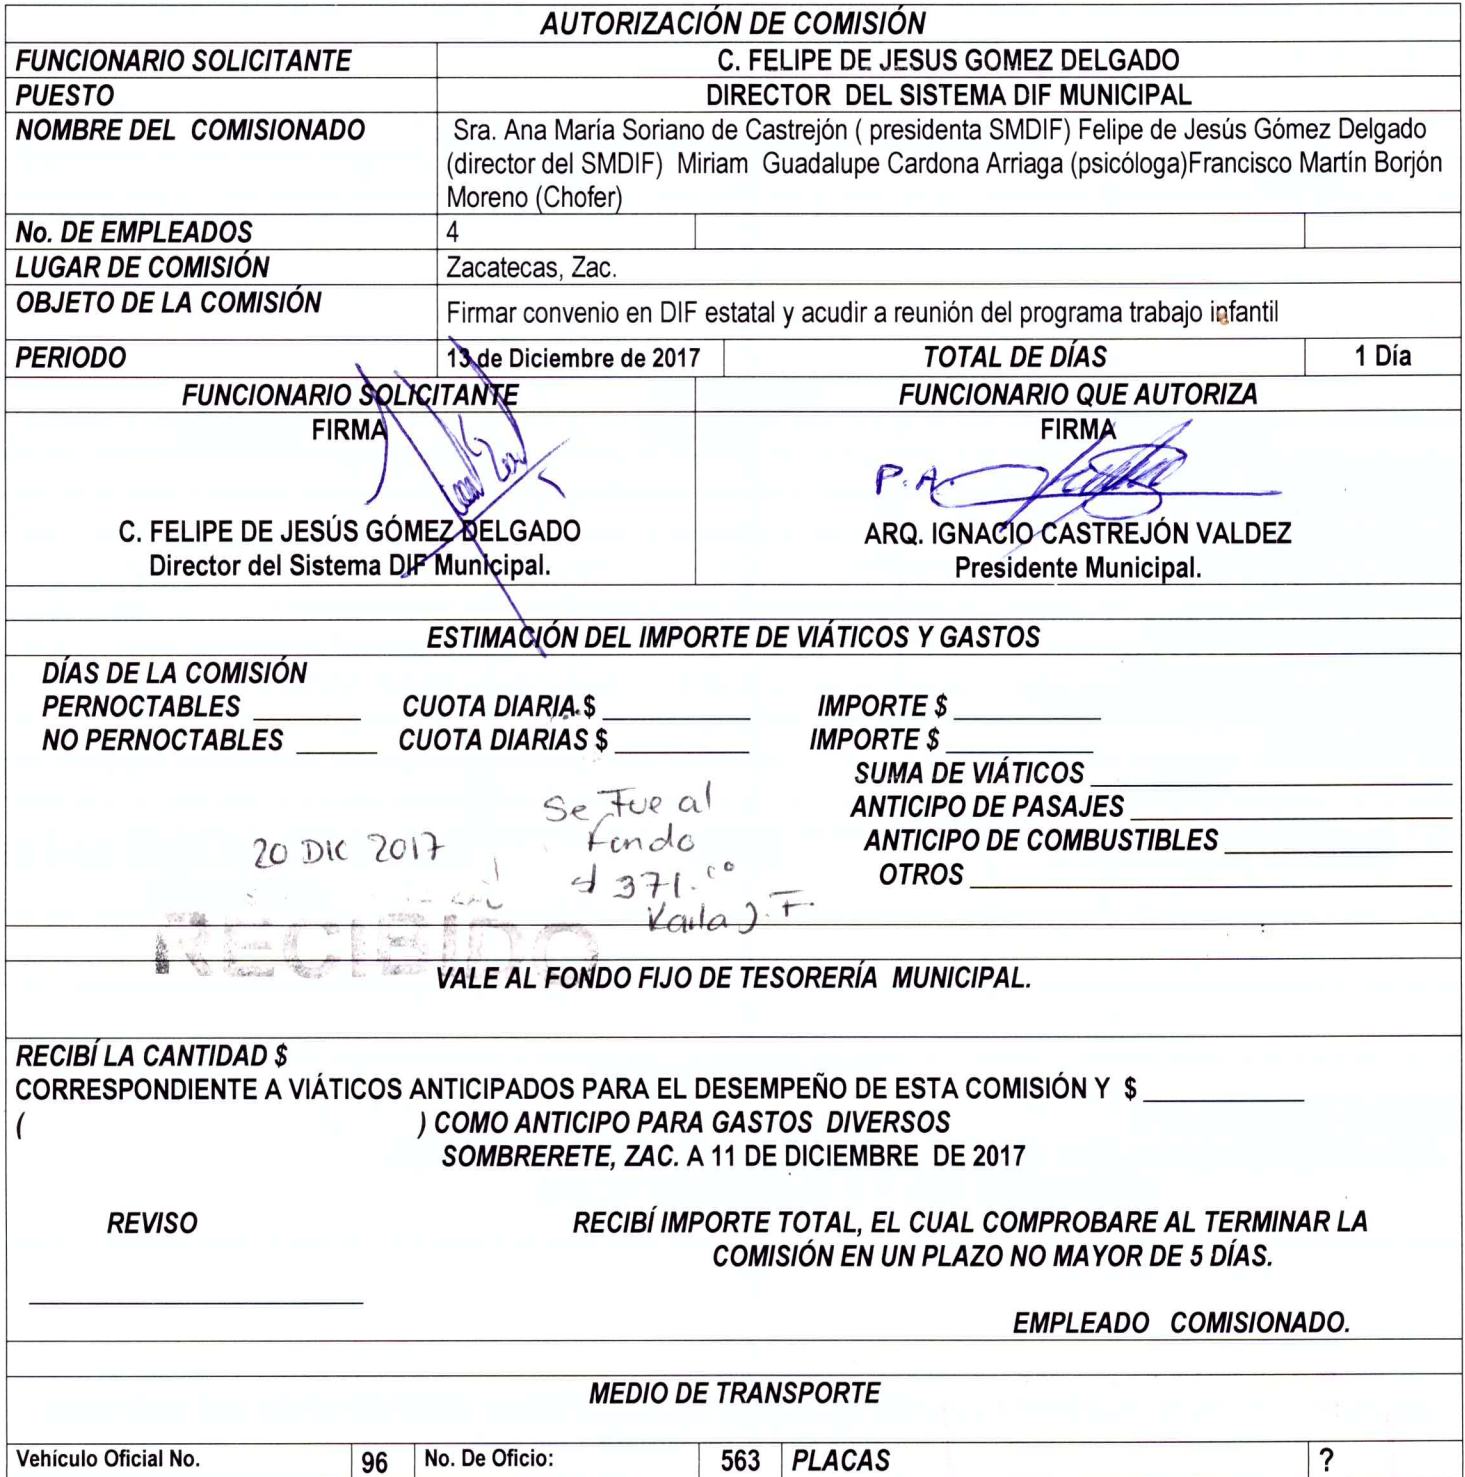 AUTORIZACIÓN DE COMISIÓN
FUNCIONARIO SOLICITANTE C. FELIPE DE JESUS GOMEZ DELGADO
PUESTO DIRECTOR DEL SISTEMA DIF MUNICIPAL
NOMBRE DEL COMISIONADO Sra. Ana María Soriano de Castrejón ( presidenta SMDIF) Felipe de Jesús Gómez Delgado
(director del SMDIF) Miriam Guadalupe Cardona Arriaga (psicóloga)Francisco Martín Borjón
Moreno (Chofer)
No. DE EMPLEADOS 4
LUGAR DE COMISIÓN Zacatecas, Zac.
OBJETO DE LA COMISIÓN Firmar convenio en DIF estatal y acudir a reunión del programa trabajo infantil
PERIODO 13 de Diciembre de 2017 TOTAL DE DÍAS 1 Día
FUNCIONARIO SOLICITANTE FUNCIONARIO QUE AUTORIZA
FIRMA FIRMA
P.A.
C. FELIPE DE JESÚS GÓMEZ DELGADO ARQ. IGNACIO CASTREJÓN VALDEZ
Director del Sistema DIF Municipal. Presidente Municipal.
ESTIMACIÓN DEL IMPORTE DE VIÁTICOS Y GASTOS
DÍAS DE LA COMISIÓN
PERNOCTABLES ______ CUOTA DIARIA $ ________ IMPORTE $ ________
NO PERNOCTABLES _____ CUOTA DIARIAS $ _______ IMPORTE $ ________
SUMA DE VIÁTICOS ____________________
ANTICIPO DE PASAJES __________________
ANTICIPO DE COMBUSTIBLES ____________
OTROS ___________________________
Se Fue al
Fondo
20 DIC 2017
$ 371.00
Karla J. F.
RECIBIDO
VALE AL FONDO FIJO DE TESORERÍA MUNICIPAL.
RECIBÍ LA CANTIDAD $
CORRESPONDIENTE A VIÁTICOS ANTICIPADOS PARA EL DESEMPEÑO DE ESTA COMISIÓN Y $ _________
( ) COMO ANTICIPO PARA GASTOS DIVERSOS
SOMBRERETE, ZAC. A 11 DE DICIEMBRE DE 2017
REVISO RECIBÍ IMPORTE TOTAL, EL CUAL COMPROBARE AL TERMINAR LA
COMISIÓN EN UN PLAZO NO MAYOR DE 5 DÍAS.
EMPLEADO COMISIONADO.
MEDIO DE TRANSPORTE
Vehículo Oficial No. 96 No. De Oficio: 563 PLACAS ?